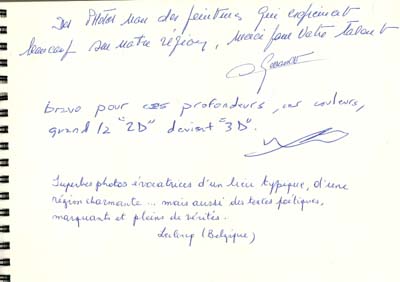 Des photos non des peintures qui expriment
beaucoup sur notre région, merci pour votre talent
bravo pour ces profondeurs, ces couleurs,
quand la "2D" devient "3D".
Superbes photos évocatrices d'un lieu typique, d'une
région charmante ... mais aussi des textes poétiques,
marquants et pleins de vérités.
(Belgique)